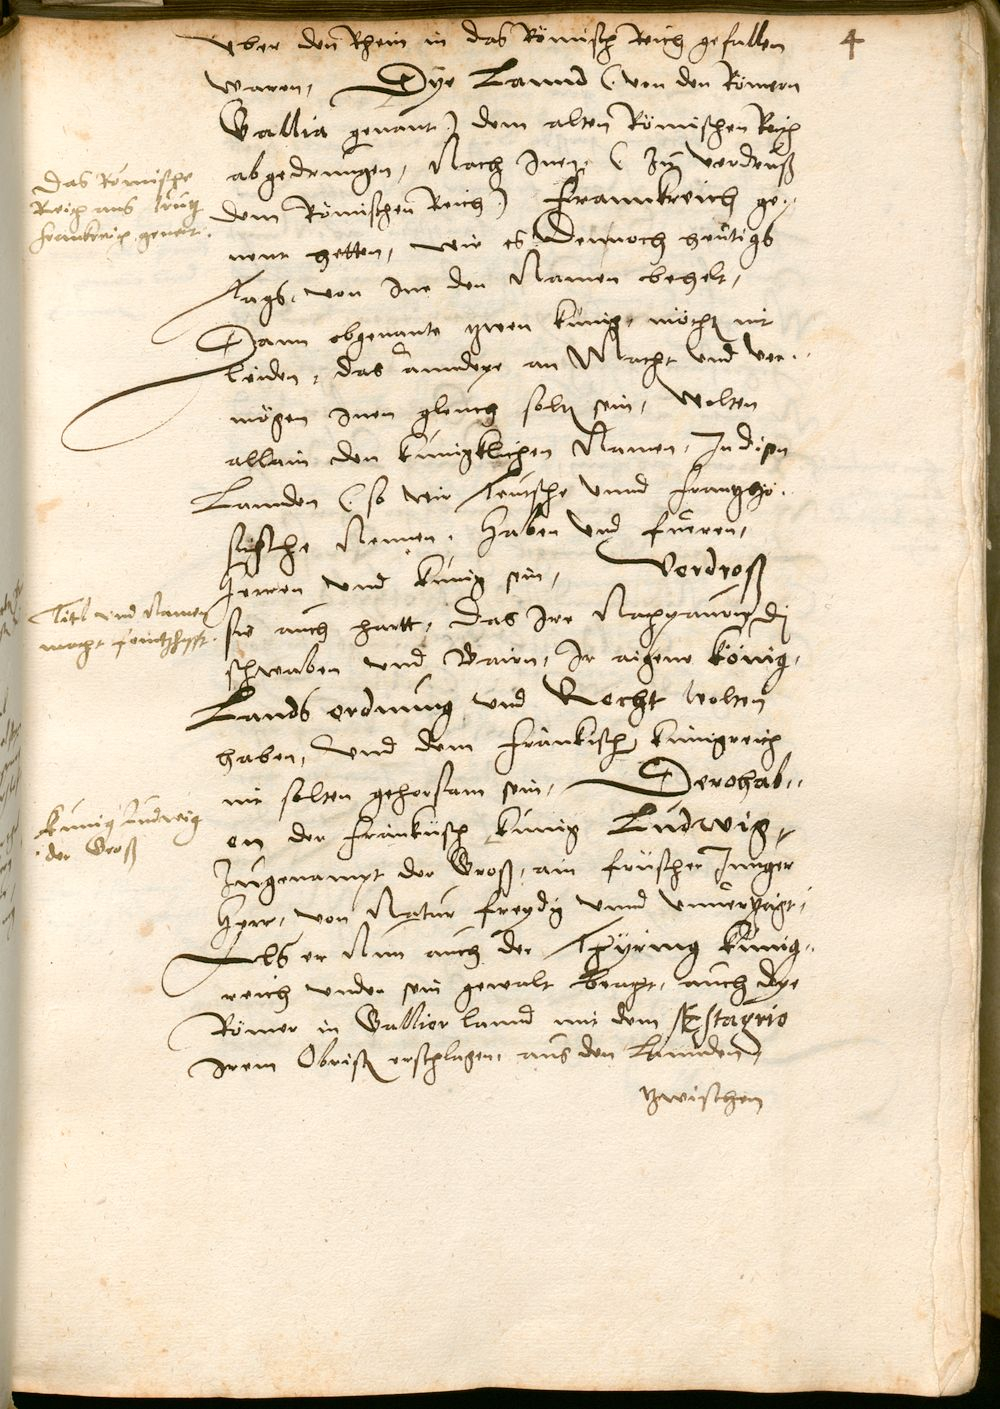 4
vber den Rhein in das Römisch Reich gefallen
waren, Dÿe Lannd (von den Römern
Gallia genant) dem alten Römischen Reich
abgedrungen, Nach Inen (zu verdruß
dem Römischen Reich) Frannkreich ge-
nent hetten, wie es dennoch heutigs
Tags, von Ine den Namen behelt,
Dann obgenante zwen künig, möcht nit
leiden, das anndere an Macht vnd ver-
mögen Inen gleich solt sein, Wolten
allain den künigklichen Namen, In disen
Lannden (so wir Teutsche vnnd Frantzö-
sische Nennen, haben vnd fueren,
Herren vnd künig sein, Verdroß
sie auch hartt, das Ire Nachpaurn di
schwaben vnd Bairn, Ir aigene könig,
Lands ordnung vnd Recht wolten
haben, Vnd dem Fränkisch künigreich
nit solten gehorsam sein, Derohalb-
en der Fränkisch künig Ludwig,
Zugenampt der Groß, ain früscher Junger
Herr, von Natur freydig vnnd vnuerzagt,
Als er Nun auch der Thÿring künig-
reich vnder sein gewalt bracht, auch dÿe
Römer in Gallier lannd mit dem
Irem Obrist erschlagen, aus den Lannden,
zwischen
Das Römische
Reich aus
Frankreich genent.
Titl vnd Namen
macht feintschafft.
künig Ludwig
der Groß